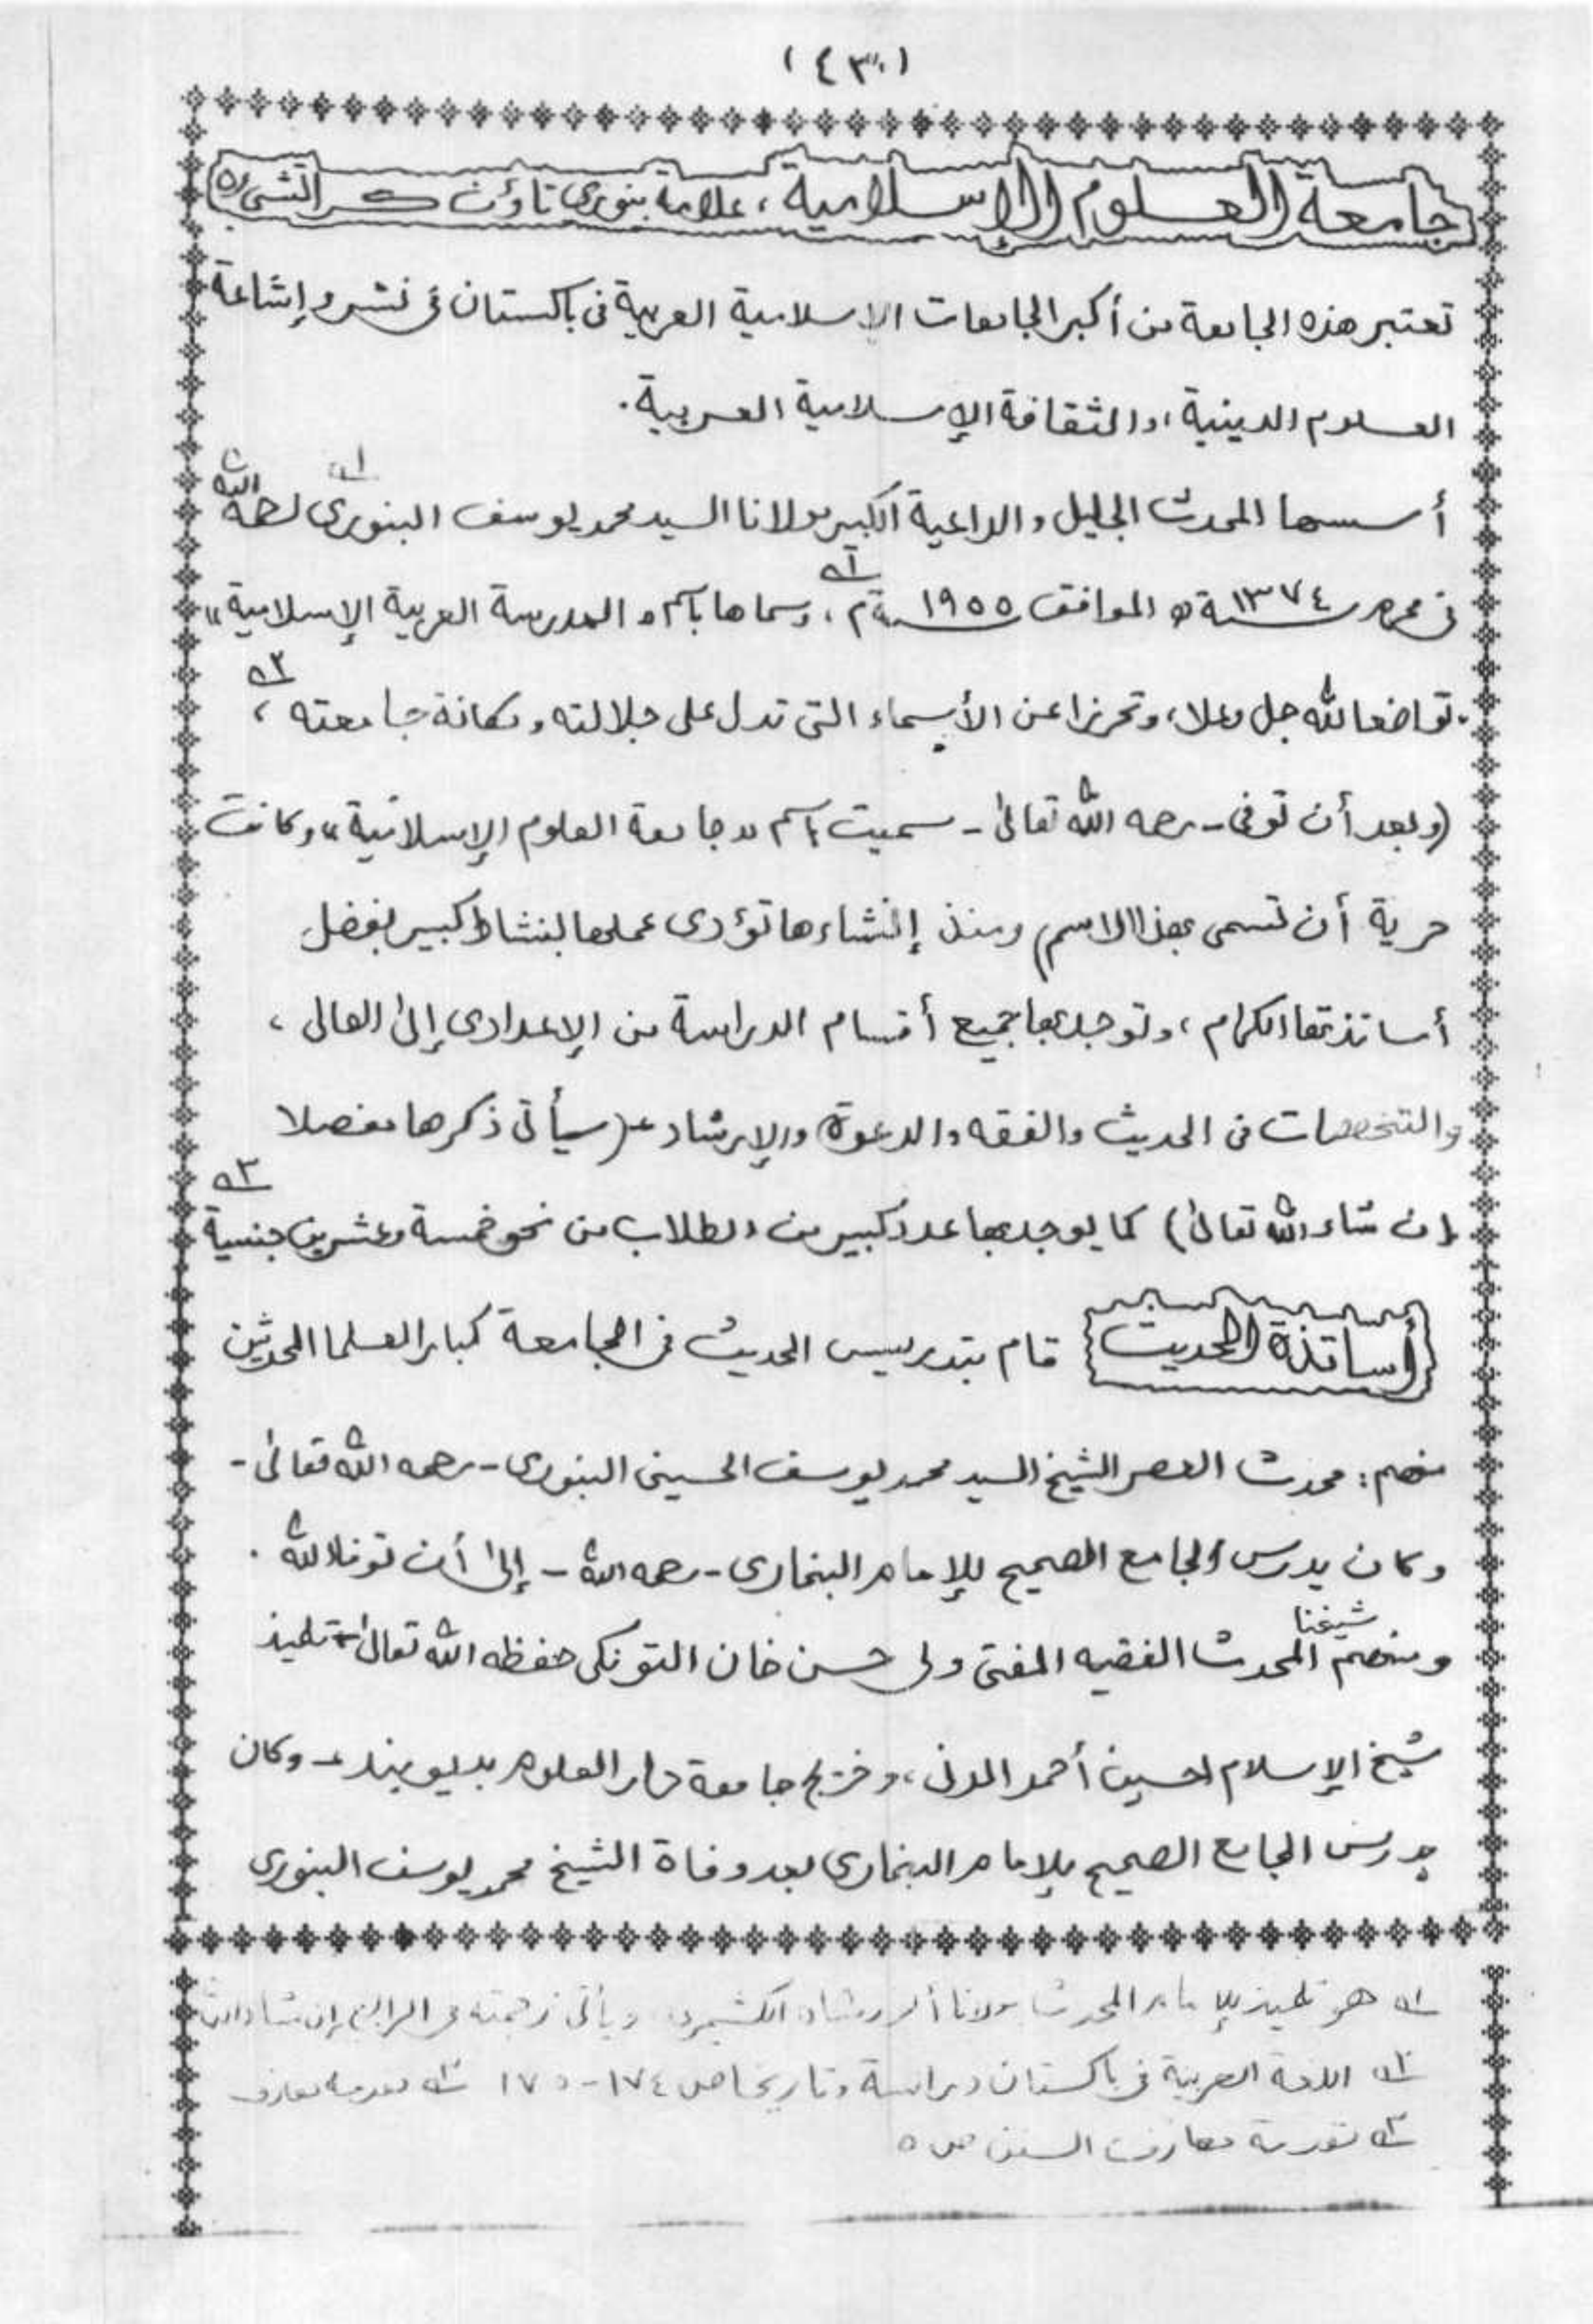 (٤٣٠)
جامعة العلوم الإسلامية، علامة بنوري تاؤن كراتشي ٥
تعتبر هذه الجامعة من أكبر الجامعات الإسلامية العربية في باكستان في نشر وإشاعة
العلوم الدينية، والثقافة الإسلامية العربية.
أسسها المحدث الجليل والداعية الكبير مولانا السيد محمد يوسف البنوري رحمه الله ١
في محرم سنة ١٣٧٤ھ الموافق سنة ١٩٥٥م ٢، وسماها باسم "المدرسة العربية الإسلامية"
تواضعا لله جل وعلا، وتحرزا عن الأسماء التي تدل على جلالته ومكانة جامعته ٣،
(وبعد أن توفي - رحمه الله تعالى - سميت باسم "جامعة العلوم الإسلامية" وكانت
حرية أن تسمى بهذا الاسم) ومنذ إنشاءها تؤدى عملها بنشاط كبير بفضل
أساتذتها الكرام، وتوجد بها جميع أقسام الدراسة من الإعدادى إلى العالى،
والتخصصات في الحديث والفقه والدعوة والإرشاد - (سيأتي ذكرها مفصلا
إن شاء الله تعالى) كما يوجد بها عدد كبير من الطلاب من نحو خمسة وعشرين جنسية ٣
أساتذة الحديث قام بتدريس الحديث في الجامعة كبار العلما المحدثين
منهم: محدث العصر الشيخ السيد محمد يوسف الحسيني البنوري - رحمه الله تعالى -
وكان يدرس الجامع الصحيح للإمام البخاري - رحمه الله - إلى أن توفاه الله.
ومنهم شيخنا المحدث الفقيه المفتي ولي حسن خان التونكي حفظه الله تعالى - تلميذ
شيخ الإسلام حسين أحمد المدني، وخريج جامعة دار العلوم بديوبند - وكان
يدرس الجامع الصحيح للإمام البخاري بعد وفاة الشيخ محمد يوسف البنوري
١ هو تلميذ للإمام المحدث مولانا أنور شاه الكشميري ويأتي ترجمته في الرابع إن شاء الله
٢ اللغة العربية في باكستان دراسة وتاريخا ص ١٧٤-١٧٥ ٣ مقدمة معارف
٣ مقدمة معارف السنن ص ٥